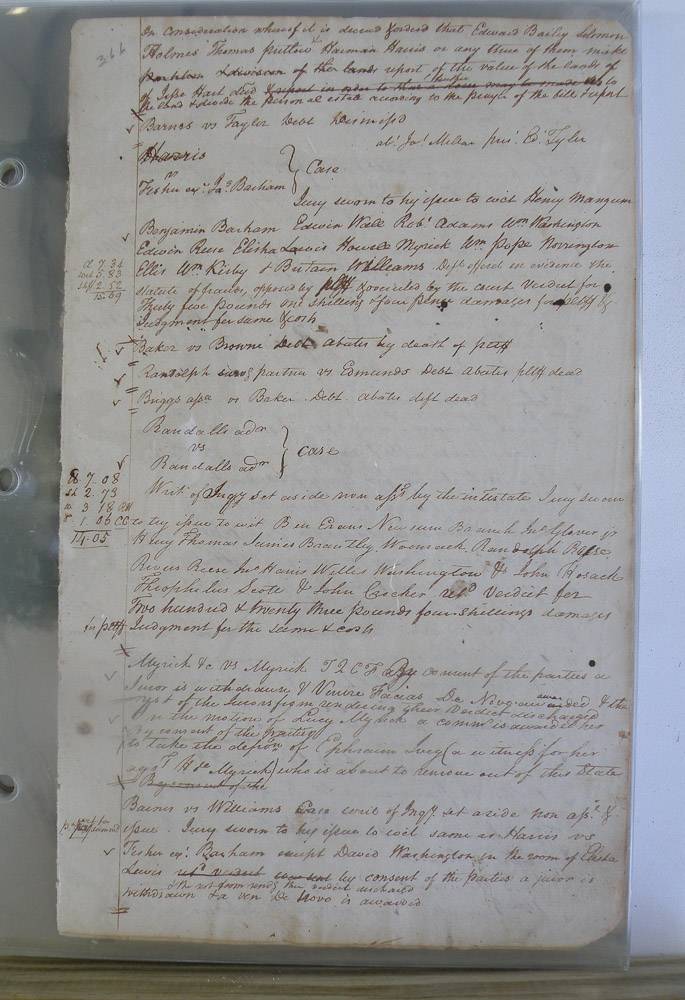 366
In Consideration whereof it is decreed & ordered that Edward Bailey Solomon
Holmes Thomas Harman Harris or any three of them make
partition & division of the lands report of the value of the lands of
of Jesse Hart decd & report in order to that a to be made
the land & divide the personal estate according to the prayer of the bill & report
Barnes vs Taylor Debt Dismiss'd
Harris
vs
Fisher exr Jas Barham
Case
Jury sworn to try issue to wit Henry Mangum
Benjamin Barham Edwin Wall Robt Adams Wm Washington
Edwin Reese Elisha Lewis Howell Myrick Wm Pope Norrington
Ellis Wm Kirby & Britain Williams. Deft offered in evidence the
statute of frauds, opposed by pltff & overruled by the court Verdict for
Thirty five pounds one shilling & four pence damages for pltff &
Judgment for same & costs
7.34
5.83
2.52
Baker vs Browne Debt abates by death of pltff
Randolph survg partner vs Edmunds Debt Abates pltff dead
Briggs vs Baker Debt abates deft dead
Randalls admr
vs
Randalls admr
case
7.08
2.73
3.18
1.06
14.05
Writ of Inqy set aside non asst by the intestate Jury sworn
to try issue to wit Ben Evans Newsum Branch Jno Glover jr
Henry Thomas James Brantley, Womack, Randolph Reese,
Rivers Reese Harris Willis Washington & John Hosack
Theophilus Scott & John Crocker retd Verdict for
Two hundred & twenty three pounds four shillings damages
for pltff Judgment for the same & costs
Myrick &c vs Myrick T I C F By consent of the parties a
Juror is withdrawn & Venire Facias De Novo awarded & the
rest of the Jurors from rendering their Verdict discharged
On the motion of Lucy Myrick a commn is awarded her
by consent of the parties
to take the depon of Ephraim Ivey (a witness for her
agst H Myrick) who is about to remove out of this State
By consent of the
Baines vs Williams Case writ of Inqy set aside non asst &
issue. Jury sworn to try issue to wit same as Harris vs
Fisher exr Barham except David Washington in the room of Elisha
Lewis retd verdict by consent of the parties a juror is
& the rest from rendg their verdict discharged
withdrawn & a ven De Novo is awarded